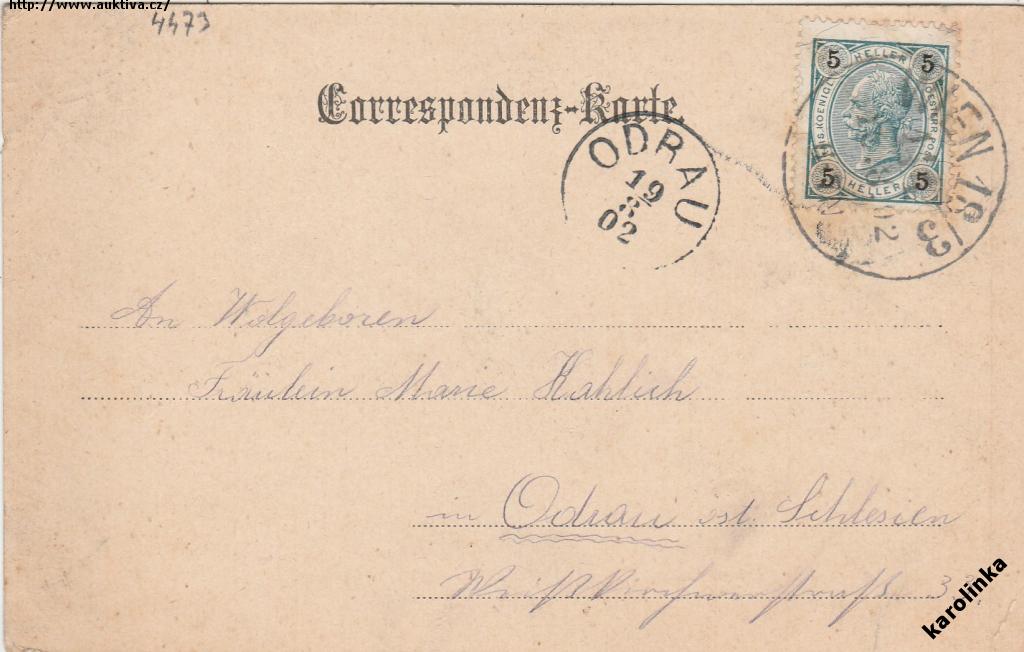 http://www.auktiva.cz/
4473
Correspondenz-Karte.
ODRAU
19
8
02
5 HELLER 5
5 HELLER 5
IEN 18/3
02
An Wolgeboren
Fräulein Marie Kahlich
in Odrau öst. Schlesien
Weißkirchnerstraße 3
karolinka